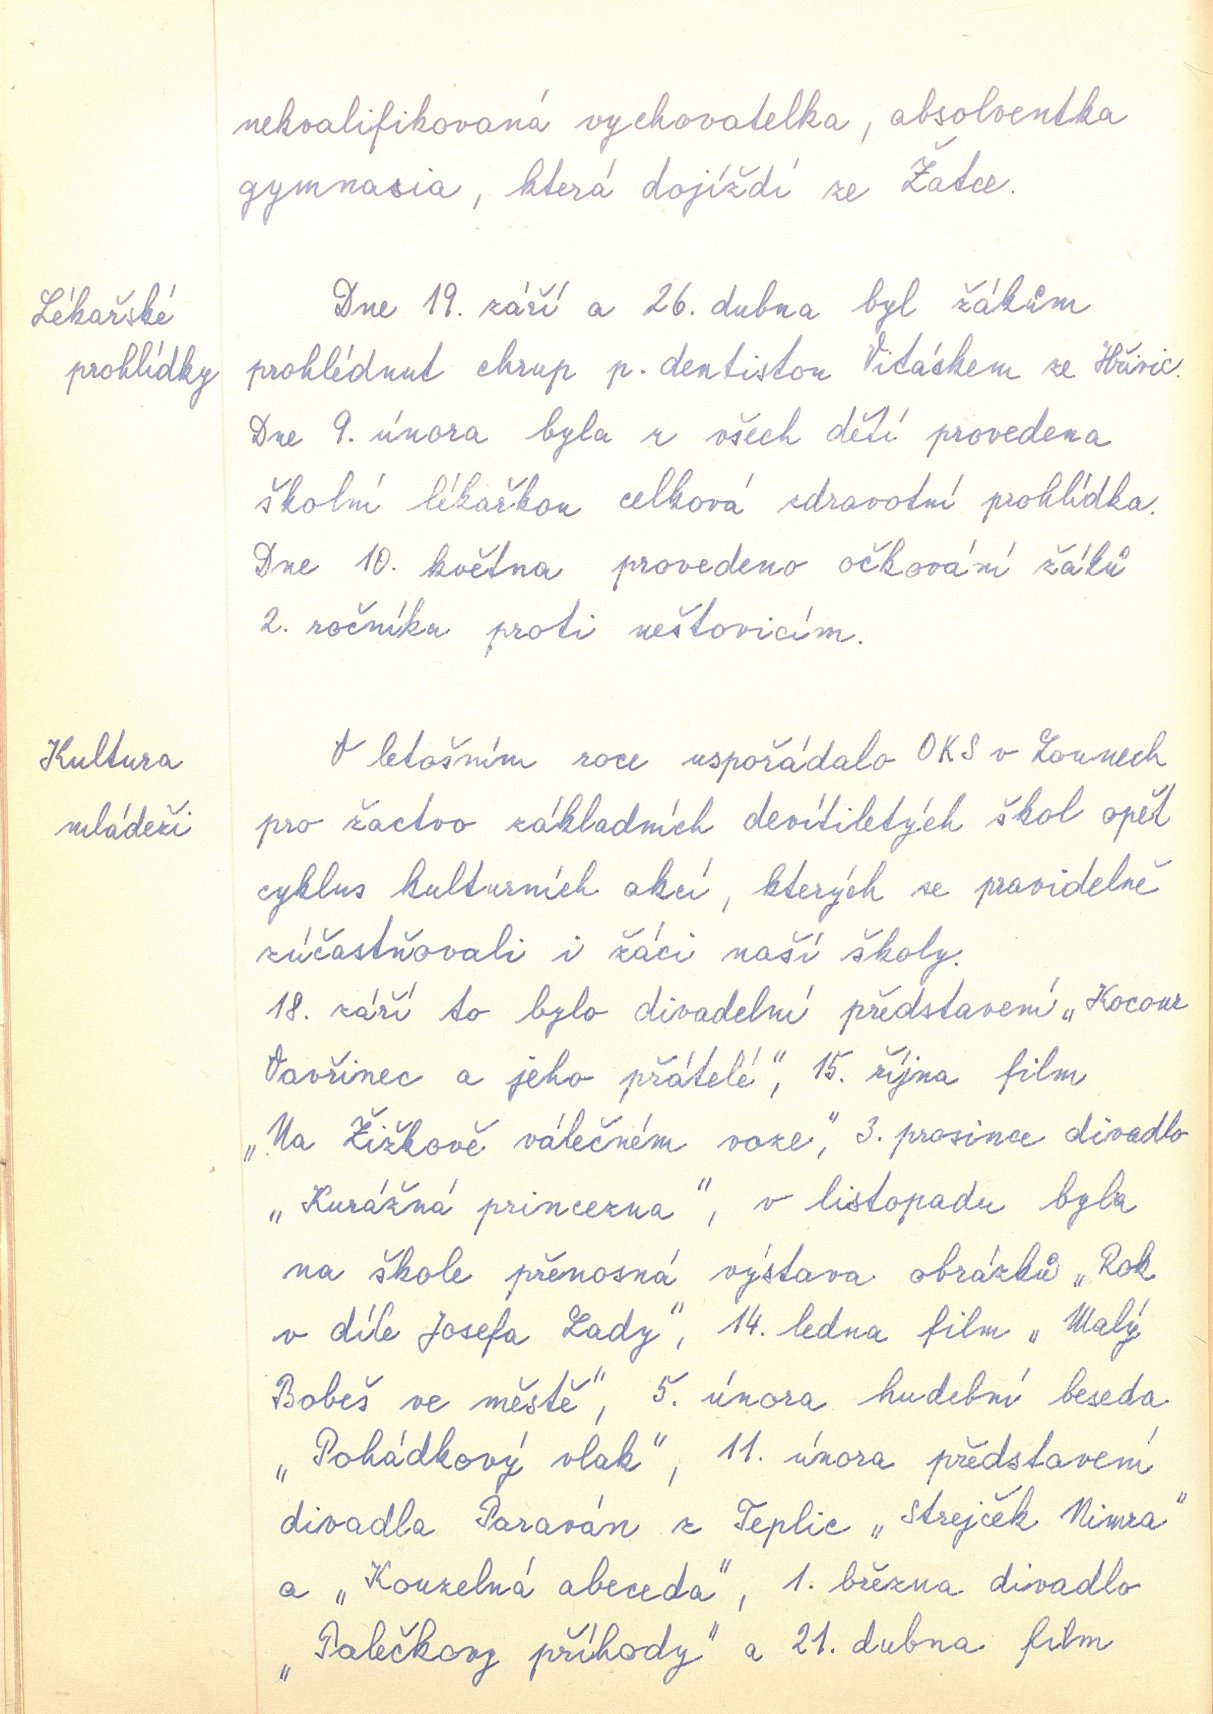 nekvalifikovaná vychovatelka, absolventka
gymnasia, která dojíždí ze Žatce.
Lékařské
prohlídky
Dne 19. září a 26. dubna byl žákům
prohlédnut chrup p. dentistou Vitáskem ze Hřivic.
Dne 9. února byla u všech dětí provedena
školní lékařkou celková zdravotní prohlídka.
Dne 10. května provedeno očkování žáků
2. ročníku proti neštovicím.
Kultura
mládeži
V letošním roce uspořádalo OKS v Lounech
pro žactvo základních devítiletých škol opět
cyklus kulturních akcí, kterých se pravidelně
zúčastňovali i žáci naší školy.
18. září to bylo divadelní představení „Kocour
Vavřinec a jeho přátelé", 15. října film
„Na Žižkově válečném voze", 3. prosince divadlo
„Kurážná princezna", v listopadu byla
na škole přenosná výstava obrázků „Rok
v díle Josefa Lady", 14. ledna film „Malý
Bobeš ve městě", 5. února hudební beseda
„Pohádkový vlak", 11. února představení
divadla Paraván z Teplic „Strejček Nimra"
a „Kouzelná abeceda", 1. března divadlo
„Palečkovy příhody" a 21. dubna film